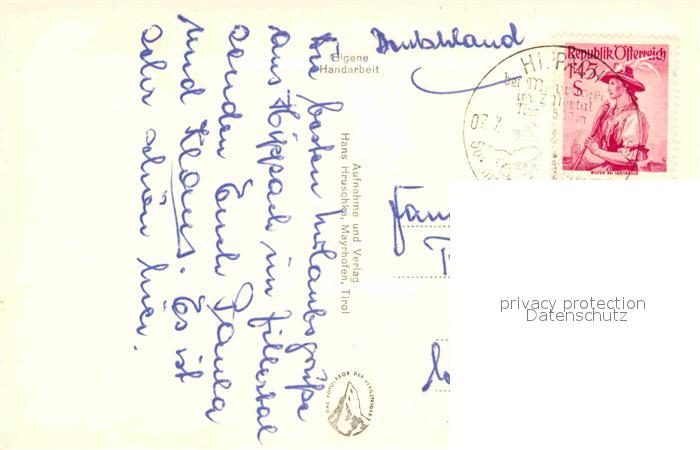 Deutschland
Eigene
Handarbeit
Die besten Urlaubsgrüße
aus Hippach im Zillertal
senden Euch Paula
und Klaus. Es ist
sehr schön hier.
Aufnahme und Verlag
Hans Hruschka, Mayrhofen, Tirol
Republik Österreich
1.45
S
WILTEN BEI INNSBRUCK
HIPPACH
bei Mayrhofen
im Zillertal
Tirol 600m
07.7.
Fam
privacy protection
Datenschutz